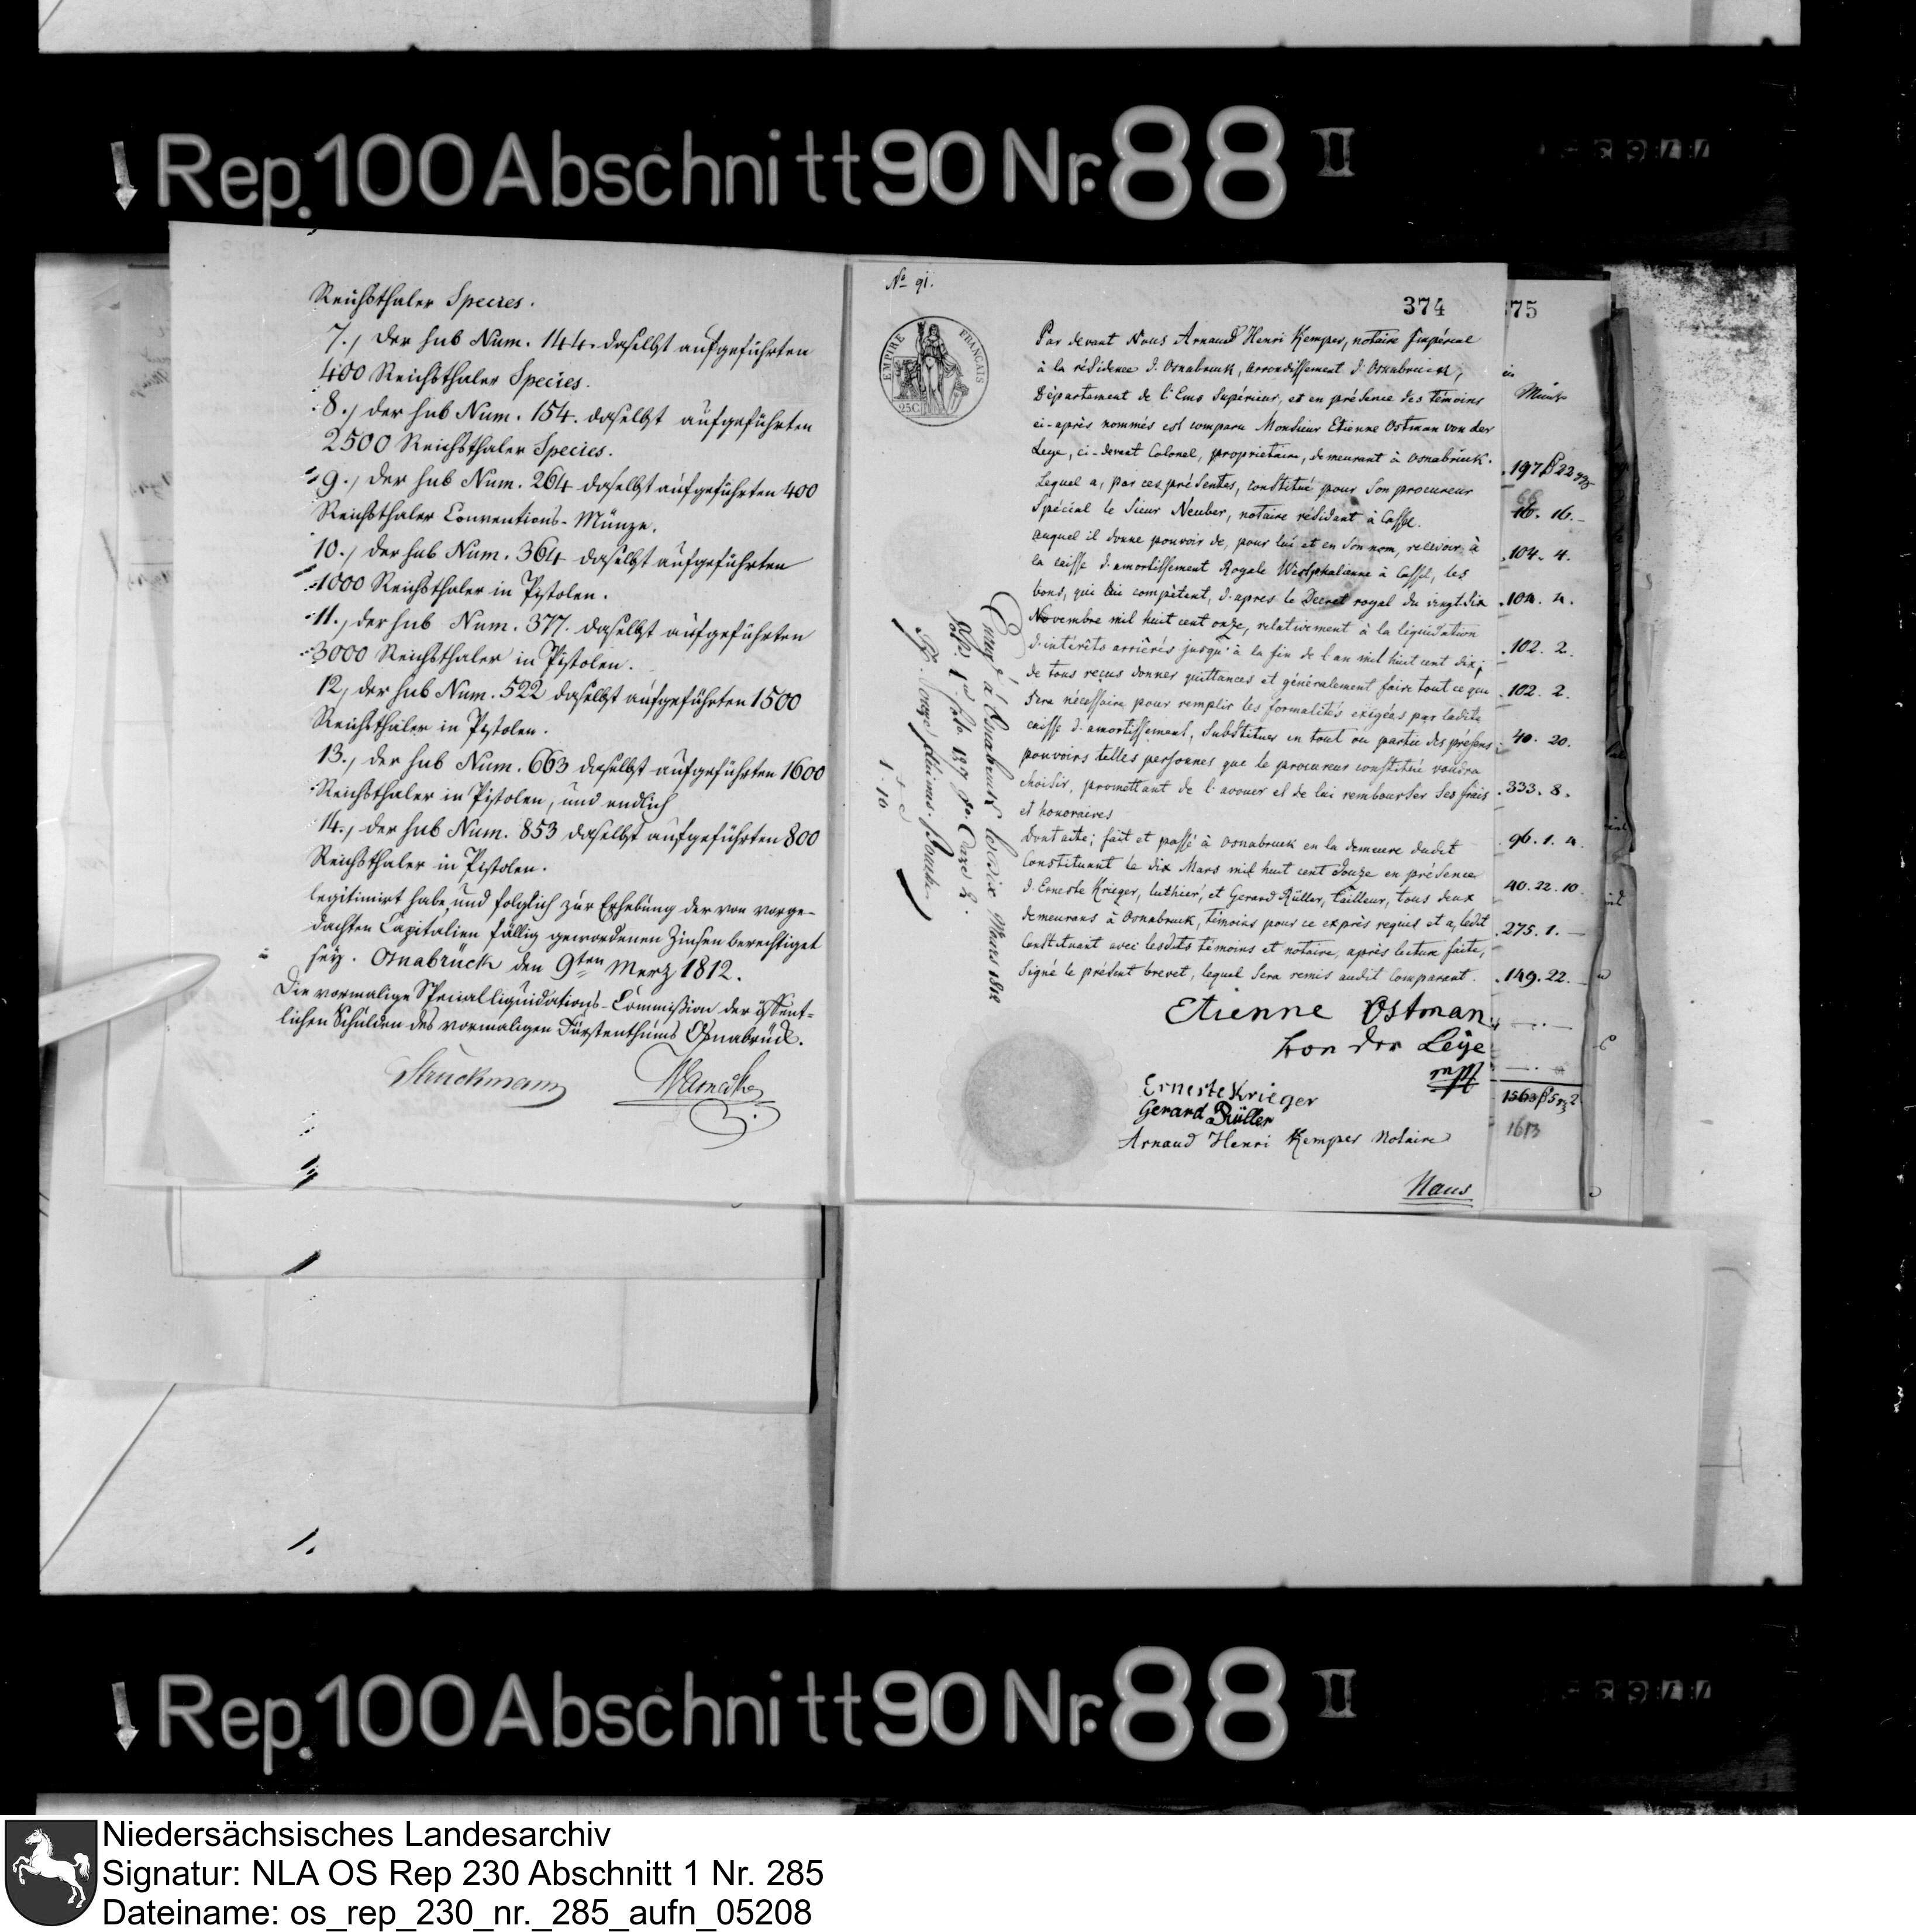 Rep. 100 Abschnitt 90 Nr. 88 II
Reichsthaler Species.
7., der sub Num. 144. daselbst aufgeführten
400 Reichsthaler Species.
8., der sub Num. 154. daselbst aufgeführten
2500 Reichsthaler Species.
9., der sub Num. 264 daselbst aufgeführten 400
Reichsthaler Conventions-Münze.
10., der sub Num. 364 daselbst aufgeführten
1000 Reichsthaler in Pistolen.
11., der sub Num. 377. daselbst aufgeführten
3000 Reichsthaler in Pistolen.
12, der sub Num. 522 daselbst aufgeführten 1500
Reichsthaler in Pistolen.
13., der sub Num. 663 daselbst aufgeführten 1600
Reichsthaler in Pistolen, und endlich
14., der sub Num. 853 daselbst aufgeführten 800
Reichsthaler in Pistolen.
legitimirt habe und folglich zur Erhebung der von vorge-
dachten Capitalien fällig gewordenen Zinsen berechtiget
sey. Osnabrück den 9ten Merz 1812.
Die vormalige Specialliquidations-Commission der öffent-
lichen Schulden des vormaligen Fürstenthums Osnabrück.
Struckmann
No 91.
374
EMPIRE FRANÇAIS
25C
Par devant Nous Arnaud Henri Kemper, notaire Impérial
à la résidence d'Osnabruck, arrondissement d'Osnabruck,
Département de l'Ems Supérieur, et en présence des témoins
ci-après nommés est comparu Monsieur Etienne Ostman von der
Leye, ci-devant Colonel, proprietaire, demeurant à Osnabruck.
Lequel a, par ces présentes, constitué pour son procureur
Spécial le Sieur Neuber, notaire résidant à Cassel.
auquel il donne pouvoir de, pour lui et en son nom, recevoir à
la caisse d'amortissement Royale Westphalienne à Cassel, les
bons, qui lui compètent, d'apres le Decret royal du vingt dix
Novembre mil huit cent onze, relativement à la liquidation
d'intérêts arriérés jusqu'à la fin de l'an mil huit cent dix;
de tous reçus donner quittances et généralement faire tout ce que
sera nécessaire pour remplir les formalités exigées par ladite
caisse d'amortissement, Substituer en tout ou partie des présens
pouvoirs telles personnes que le procureur constitué voudra
choisir, promettant de l'avouer et de lui rembourser ses frais
et honoraires
Dont acte; fait et passé à Osnabruck en la demeure dudit
Constituant le dix Mars mil huit cent Douze en présence
d'Erneste Krieger, luthier, et Gerard Rüller, tailleur, tous deux
demeurans à Osnabruck, témoins pour ce exprès requis et a, ledit
Constituant avec lesdits témoins et notaire, après lecture faite,
Signé le présent brevet, lequel sera remis audit Comparant.
Etienne Ostman
von der Leye
Erneste Krieger
Gerard Rüller
Arnaud Henri Kemper Notaire
Enreg. à Osnabruck le dix Mars 1812
75
197 22
16. 16.
104. 4.
104. 4.
102. 2.
102. 2.
40. 20.
333. 8.
96. 1. 4.
40. 22. 10
275. 1.
149. 22.
1613
Rep. 100 Abschnitt 90 Nr. 88 II
Niedersächsisches Landesarchiv
Signatur: NLA OS Rep 230 Abschnitt 1 Nr. 285
Dateiname: os_rep_230_nr._285_aufn_05208